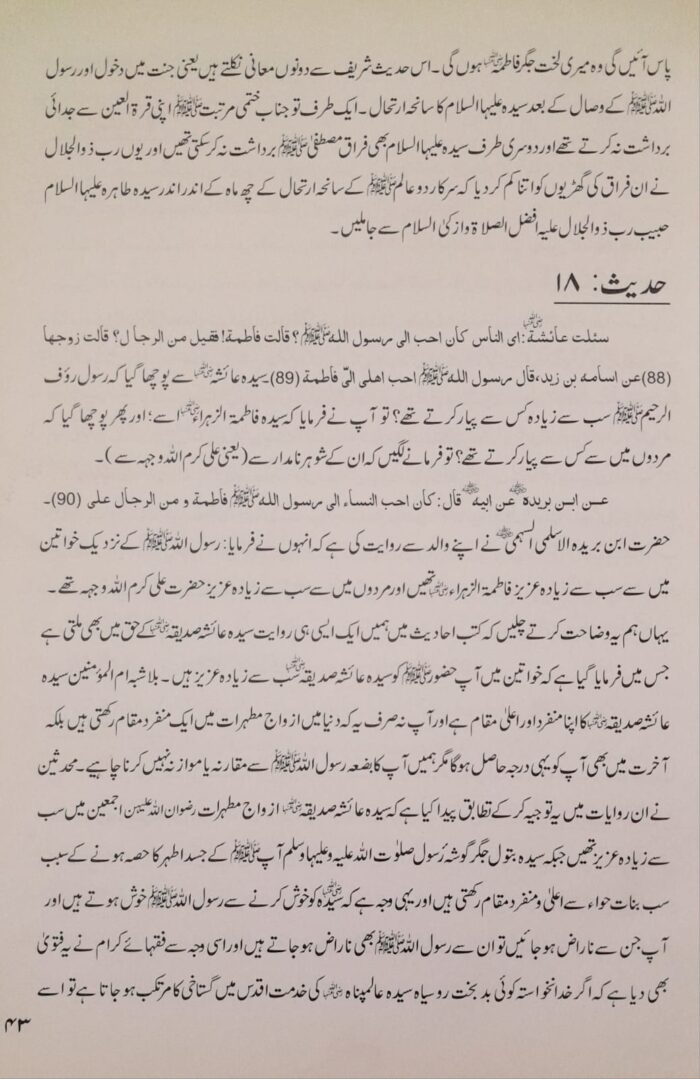 پاس آئیں گی وہ میری لخت جگر فاطمہ رضی اللہ عنہا ہوں گی۔ اس حدیث شریف سے دونوں معانی نکلتے ہیں یعنی جنت میں دخول اور رسول
اللہ ﷺ کے وصال کے بعد سیدہ علیہا السلام کا سانحہ ارتحال۔ ایک طرف تو جناب ختمی مرتبت ﷺ اپنی قرۃ العین سے جدائی
برداشت نہ کرتے تھے اور دوسری طرف سیدہ علیہا السلام بھی فراق مصطفیٰ ﷺ برداشت نہ کر سکتی تھیں اور یوں رب ذوالجلال
نے ان فراق کی گھڑیوں کو اتنا کم کر دیا کہ سرکار دو عالم ﷺ کے سانحہ ارتحال کے چھ ماہ کے اندر اندر سیدہ طاہرہ علیہا السلام
حبیب رب ذوالجلال علیہ افضل الصلاۃ و ازکیٰ السلام سے جاملیں۔
حدیث: ۱۸
سئلت عائشة رضی اللہ عنہا: ای الناس کان احب الی رسول اللہ ﷺ؟ قالت فاطمة! فقیل من الرجال؟ قالت زوجها
(88) عن اسامه بن زید، قال رسول اللہ ﷺ احب اهلی الیّ فاطمة (89)۔ سیدہ عائشہ رضی اللہ عنہا سے پوچھا گیا کہ رسول رؤف
الرحیم ﷺ سب سے زیادہ کس سے پیار کرتے تھے؟ تو آپ نے فرمایا کہ سیدہ فاطمۃ الزہراء رضی اللہ عنہا سے؛ اور پھر پوچھا گیا کہ
مردوں میں سے کس سے پیار کرتے تھے؟ تو فرمانے لگیں کہ ان کے شوہر نامدار سے (یعنی علی کرم اللہ وجہہ سے)۔
عن ابن بریدہ عن ابیه قال: کان احب النساء الی رسول اللہ ﷺ فاطمة و من الرجال علی (90)۔
حضرت ابن بریدہ الاسلمی السہمی نے اپنے والد سے روایت کی ہے کہ انہوں نے فرمایا: رسول اللہ ﷺ کے نزدیک خواتین
میں سے سب سے زیادہ عزیز فاطمۃ الزہراء رضی اللہ عنہا تھیں اور مردوں میں سے سب سے زیادہ عزیز حضرت علی کرم اللہ وجہہ تھے۔
یہاں ہم یہ وضاحت کرتے چلیں کہ کتب احادیث میں ہمیں ایک ایسی ہی روایت سیدہ عائشہ صدیقہ رضی اللہ عنہا کے حق میں بھی ملتی ہے
جس میں فرمایا گیا ہے کہ خواتین میں آپ حضور ﷺ کو سیدہ عائشہ صدیقہ رضی اللہ عنہا سب سے زیادہ عزیز ہیں۔ بلاشبہ ام المؤمنین سیدہ
عائشہ صدیقہ رضی اللہ عنہا کا اپنا منفرد اور اعلیٰ مقام ہے اور آپ نہ صرف یہ کہ دنیا میں ازواج مطہرات میں ایک منفرد مقام رکھتی ہیں بلکہ
آخرت میں بھی آپ کو یہی درجہ حاصل ہوگا مگر ہمیں آپ کا بضعہ رسول اللہ ﷺ سے مقارنہ یا موازنہ نہیں کرنا چاہیے۔ محدثین
نے ان روایات میں یہ توجیہ کر کے تطابق پیدا کیا ہے کہ سیدہ عائشہ صدیقہ رضی اللہ عنہا ازواج مطہرات رضوان اللہ علیہن اجمعین میں سب
سے زیادہ عزیز تھیں جبکہ سیدہ بتول جگر گوشہ رسول صلوٰت اللہ علیہ وعلیہا وسلم آپ ﷺ کے جسد اطہر کا حصہ ہونے کے سبب
سب بنات حواء سے اعلیٰ و منفرد مقام رکھتی ہیں اور یہی وجہ ہے کہ سیدہ رضی اللہ عنہا کو خوش کرنے سے رسول اللہ ﷺ خوش ہوتے ہیں اور
آپ جن سے ناراض ہو جائیں تو ان سے رسول اللہ ﷺ بھی ناراض ہو جاتے ہیں اور اسی وجہ سے فقہائے کرام نے یہ فتویٰ
بھی دیا ہے کہ اگر خدانخواستہ کوئی بدبخت روسیاہ سیدہ عالمپناہ رضی اللہ عنہا کی خدمت اقدس میں گستاخی کا مرتکب ہو جاتا ہے تو اسے
۴۳